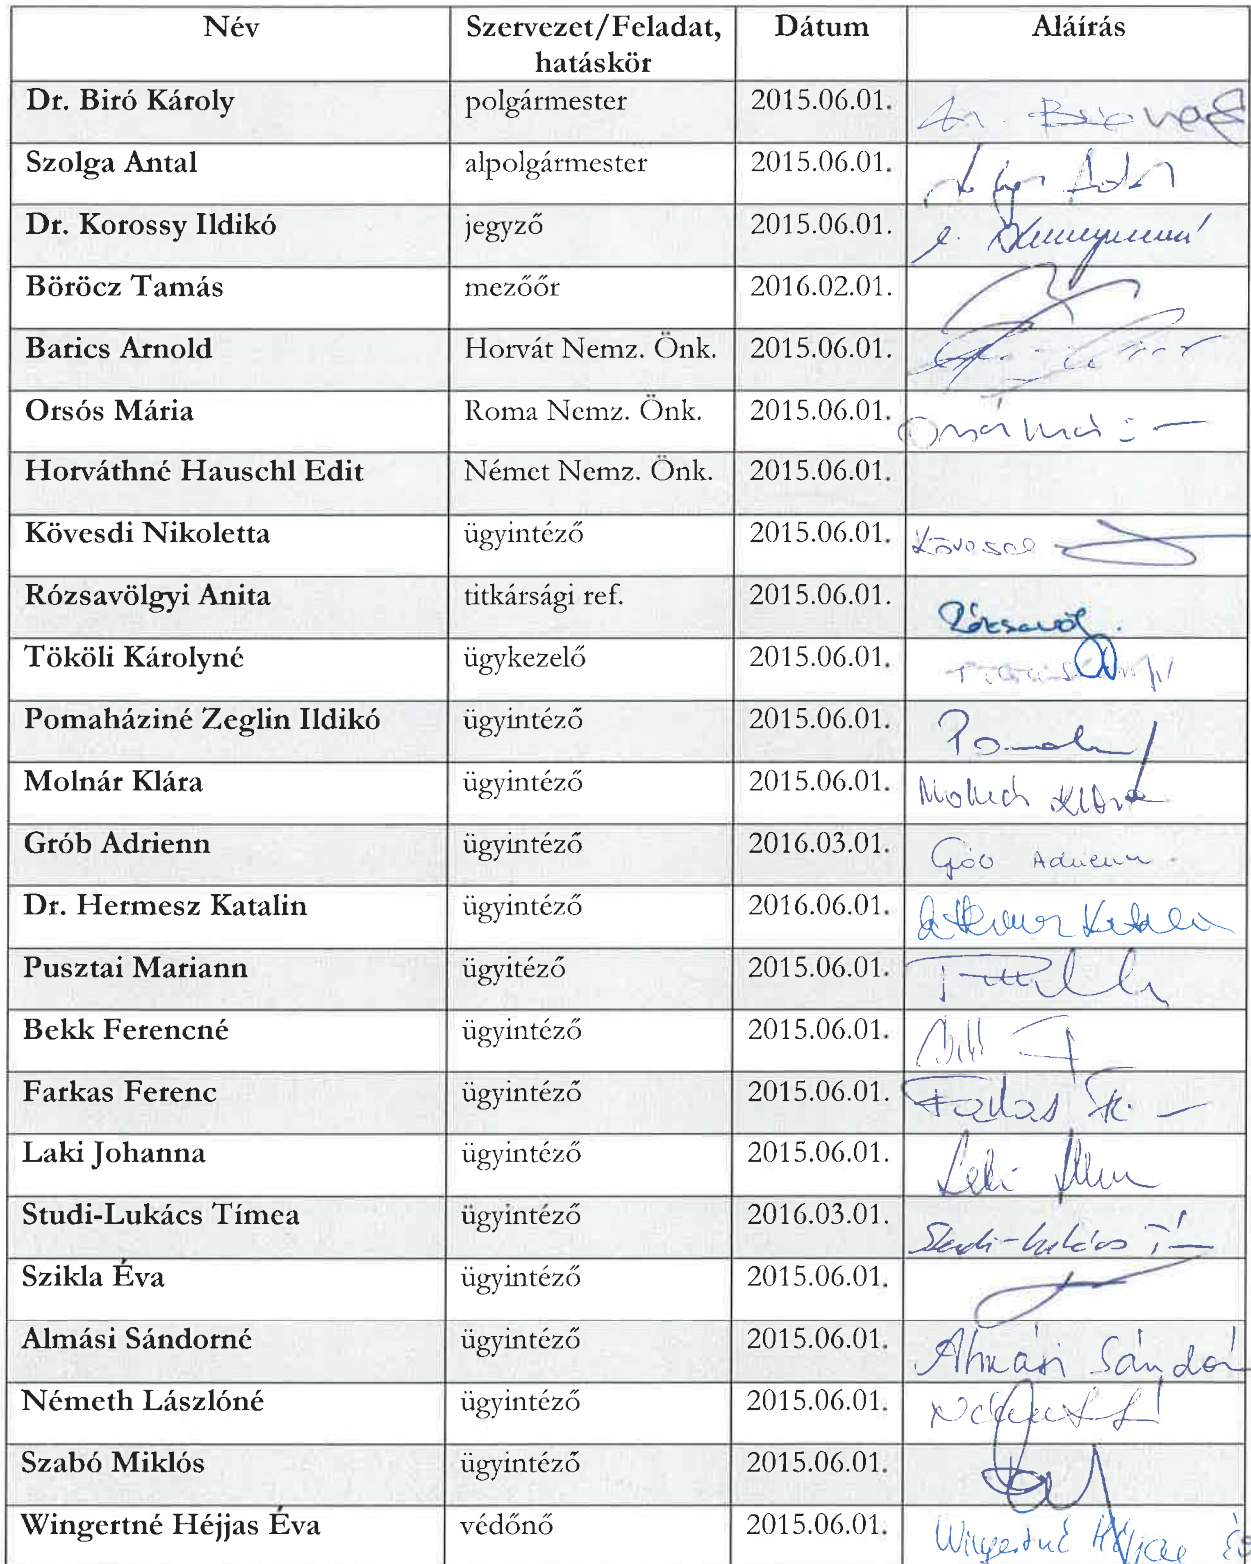 Név Szervezet/Feladat, hatáskör Dátum Aláírás
Dr. Biró Károly polgármester 2015.06.01.
Szolga Antal alpolgármester 2015.06.01.
Dr. Korossy Ildikó jegyző 2015.06.01.
Böröcz Tamás mezőőr 2016.02.01.
Barics Arnold Horvát Nemz. Önk. 2015.06.01.
Orsós Mária Roma Nemz. Önk. 2015.06.01.
Horváthné Hauschl Edit Német Nemz. Önk. 2015.06.01.
Kövesdi Nikoletta ügyintéző 2015.06.01.
Rózsavölgyi Anita titkársági ref. 2015.06.01.
Tököli Károlyné ügykezelő 2015.06.01.
Pomaháziné Zeglin Ildikó ügyintéző 2015.06.01.
Molnár Klára ügyintéző 2015.06.01. Molnár Klára
Grób Adrienn ügyintéző 2016.03.01. Grób Adrienn
Dr. Hermesz Katalin ügyintéző 2016.06.01.
Pusztai Mariann ügyitéző 2015.06.01.
Bekk Ferencné ügyintéző 2015.06.01.
Farkas Ferenc ügyintéző 2015.06.01. Farkas F.
Laki Johanna ügyintéző 2015.06.01. Laki
Studi-Lukács Tímea ügyintéző 2016.03.01. Studi-Lukács T
Szikla Éva ügyintéző 2015.06.01.
Almási Sándorné ügyintéző 2015.06.01. Almási Sándor
Németh Lászlóné ügyintéző 2015.06.01.
Szabó Miklós ügyintéző 2015.06.01.
Wingertné Héjjas Éva védőnő 2015.06.01. Wingertné Héjjas É